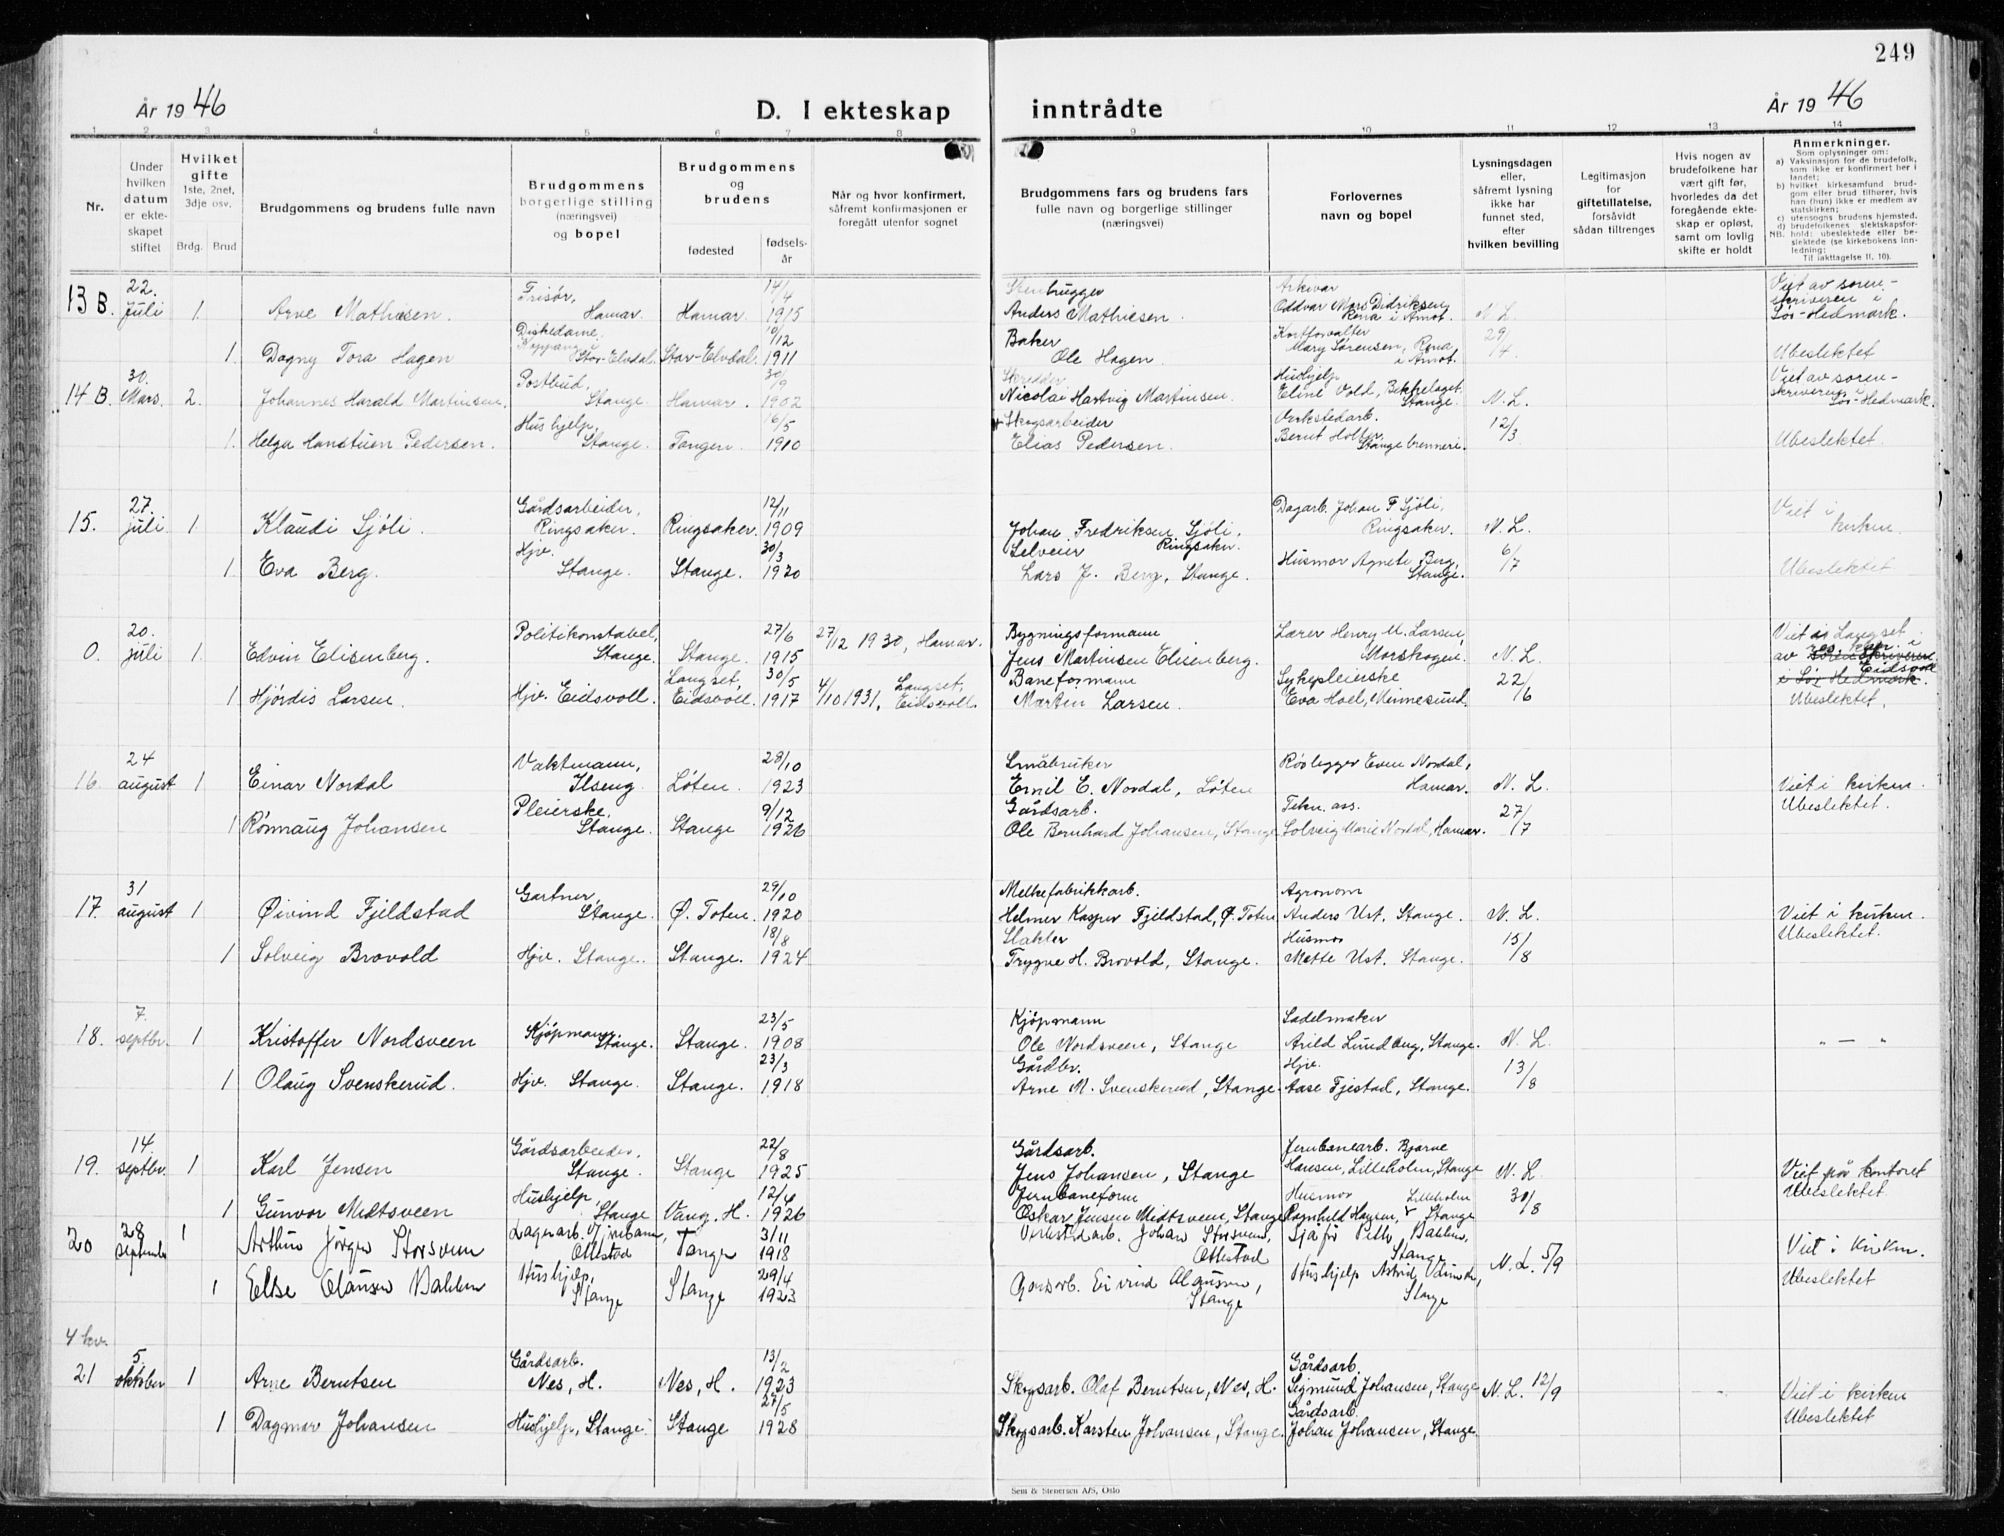 249
År 1946 D. I ekteskap inntrådte År 1946
1 2 3 4 5 6 7 8 9 10 11 12 13 14
Nr.
Under hvilken datum er ekteskapet stiftet
Hvilket gifte 1ste, 2net, 3dje osv.
Brdg. Brud
Brudgommens og brudens fulle navn
Brudgommens borgerlige stilling (næringsvei) og bopel
Brudgommens og brudens
fødested
fødselsår
Når og hvor konfirmert, såfremt konfirmasjonen er foregått utenfor sognet
Brudgommens fars og brudens fars fulle navn og borgerlige stillinger (næringsvei)
Forlovernes navn og bopel
Lysningsdagen eller, såfremt lysning ikke har funnet sted, efter hvilken bevilling
Legitimasjon for giftetillatelse, forsåvidt sådan tiltrenges
Hvis nogen av brudefolkene har vært gift før, hvorledes da det foregående ekteskap er opløst, samt om lovlig skifte er holdt
Anmerkninger.
Som oplysninger om:
a) Vaksinasjon for de brudefolk, som ikke er konfirmert her i landet;
b) hvilket kirkesamfund brudgom eller brud tilhører, hvis han (hun) ikke er medlem av statskirken;
c) utensogns brudens hjemsted.
d) brudefolkenes slektskapsforhold: ubeslektede eller beslektede (se kirkebokens innledning;
NB.
Til iakttagelse II, 10).
13 B. 22. Juli 1. Arne Mathiesen. Frisør, Hamar. Hamar. 14/4 1915 Stenbrugger Anders Mathiesen. Arkivar Oddvar Mars Didriksen, Rena i Åmot. N. L. 29/4. Viet av sorenskriveren i Sør-Hedmark.
1. Dagny Tora Hagen Diskedame, Koppang i Stor-Elvdal. Stor-Elvdal. 10/12 1911 Baker Ole Hagen. Kortforvalter Mary Sørensen, Rena i Åmot. Ubeslektet
14 B. 30. Mars. 2. Johannes Harald Martinsen. Postbud, Stange. Hamar. 30/9 1902 Skredder Nicolai Hartvig Martinsen. Hushjelp Eline Vold, Bekkelaget Stange. N. L. 12/3 Viet av sorenskriveren i Sør-Hedmark.
1. Helga Hanstuen Pedersen. Hushjelp, Stange. Tangen. 16/5 1910 Skogsarbeider Elias Pedersen. Verkstedarb. Bernt Holter, Stange brenneri. Ubeslektet.
15. 27. juli 1. Klaudi Sjøli. Gårdsarbeider, Ringsaker. Ringsaker. 12/11 1909 Johan Fredriksen Sjøli, Ringsaker. Dagarb. Johan F. Sjøli, Ringsaker. N. L. 6/7 Viet i kirken.
1. Eva Berg. Hjv. Stange. Stange. 30/3 1920 Selveier Lars J. Berg, Stange. Husmor Agnete Berg, Stange. Ubeslektet
0. 20. juli 1. Edvin Elisenberg. Politikonstabel, Stange. Stange. 27/6 1915 27/12 1930, Hamar. Bygningsformann Jens Martinsen Elisenberg. Lærer Henry M. Larsen, Morskogen. N. L. 22/6 Viet i Langset av res. kap. i Eidsvoll sorenskriveren i Sør Hedmark.
1 Hjørdis Larsen. Hjv. Eidsvoll. Langset, Eidsvoll. 30/5 1917 4/10 1931, Langset, Eidsvoll. Baneformann Martin Larsen. Sykepleierske Eva Hoel, Minnesund. Ubeslektet.
16. 24 august 1 Einar Nordal Vaktmann, Ilseng. Løten. 28/10 1923 Småbruker Emil E. Nordal, Løten Rørlegger Even Nordal, Hamar. N. L. 27/7 Viet i kirken.
1 Rønnaug Johansen Pleierske, Stange. Stange 9/12 1926 Gårdsarb. Ole Bernhard Johansen, Stange Tekn. ass. Solveig Marie Nordal, Hamar. Ubeslektet.
17. 31 august 1 Øivind Fjeldstad Gartner, Stange. Ø. Toten. 29/10 1920 Melkefabrikkarb. Helmer Kasper Fjeldstad, Ø. Toten Agronom Anders Ust, Stange. N. L. 15/8 Viet i kirken.
1 Solveig Brovold Hjv. Stange. Stange. 18/8 1924 Slakter Trygve H. Brovold, Stange. Husmor Mette Ust, Stange. Ubeslektet.
18. 7. septbr. 1 Kristoffer Nordsveen Kjøpmann, Stange. Stange. 23/5 1908 Kjøpmann Ole Nordsveen, Stange Sadelmaker Arild Lundberg, Stange. N. L. 13/8 " — "
1 Olaug Svenskerud. Hjv. Stange. Stange. 23/3 1918 Gårdbr. Arne M. Svenskerud, Stange. Hjv. Aase Fjestad, Stange.
19. 14. septbr. 1 Karl Jensen Gårdsarbeider, Stange. Stange 22/8 1925 Gårdsarb. Jens Johansen, Stange Jernbanearb. Bjarne Hansen, Lilleholm, Stange N. L. 30/8 Viet på kontoret
1 Gunvor Midtsveen Hushjelp, Stange Vang. H. 12/6 1926 Jernbaneform Oskar Jensen Midtsveen, Stange Husmor Ragnhild Hansen, Lilleholm Stange Ubeslektet.
20 28 september 1 Arthur Jörgen Storsveen Lagerarb. Ottestad Tangen 3/11 1918 Verkstedarb. Johan Storsveen, Ottestad Sjåfør Stange N. L. 5/9 Viet i kirken.
1 Else Olausen Hushjelp, Stange Stange 29/4 1923 Eivind Olausen, Stange Hushjelp Astrid Stange Ubeslektet
4 kv.
21 5. oktober 1 Arne Berntsen Gårdsarb. Nes, H. Nes, H. 13/2 1923 Skogsarb. Olaf Berntsen, Nes, H. Gårdsarb. Sigmund Johansen, Stange N. L. 12/9 Viet i kirken
1 Dagmar Johansen Hushjelp, Stange. Stange 27/5 1928 Skogsarb. Karsten Johansen, Stange. Gårdsarb. Johan Johansen, Stange. Ubeslektet
Sem & Stenersen A/S, Oslo